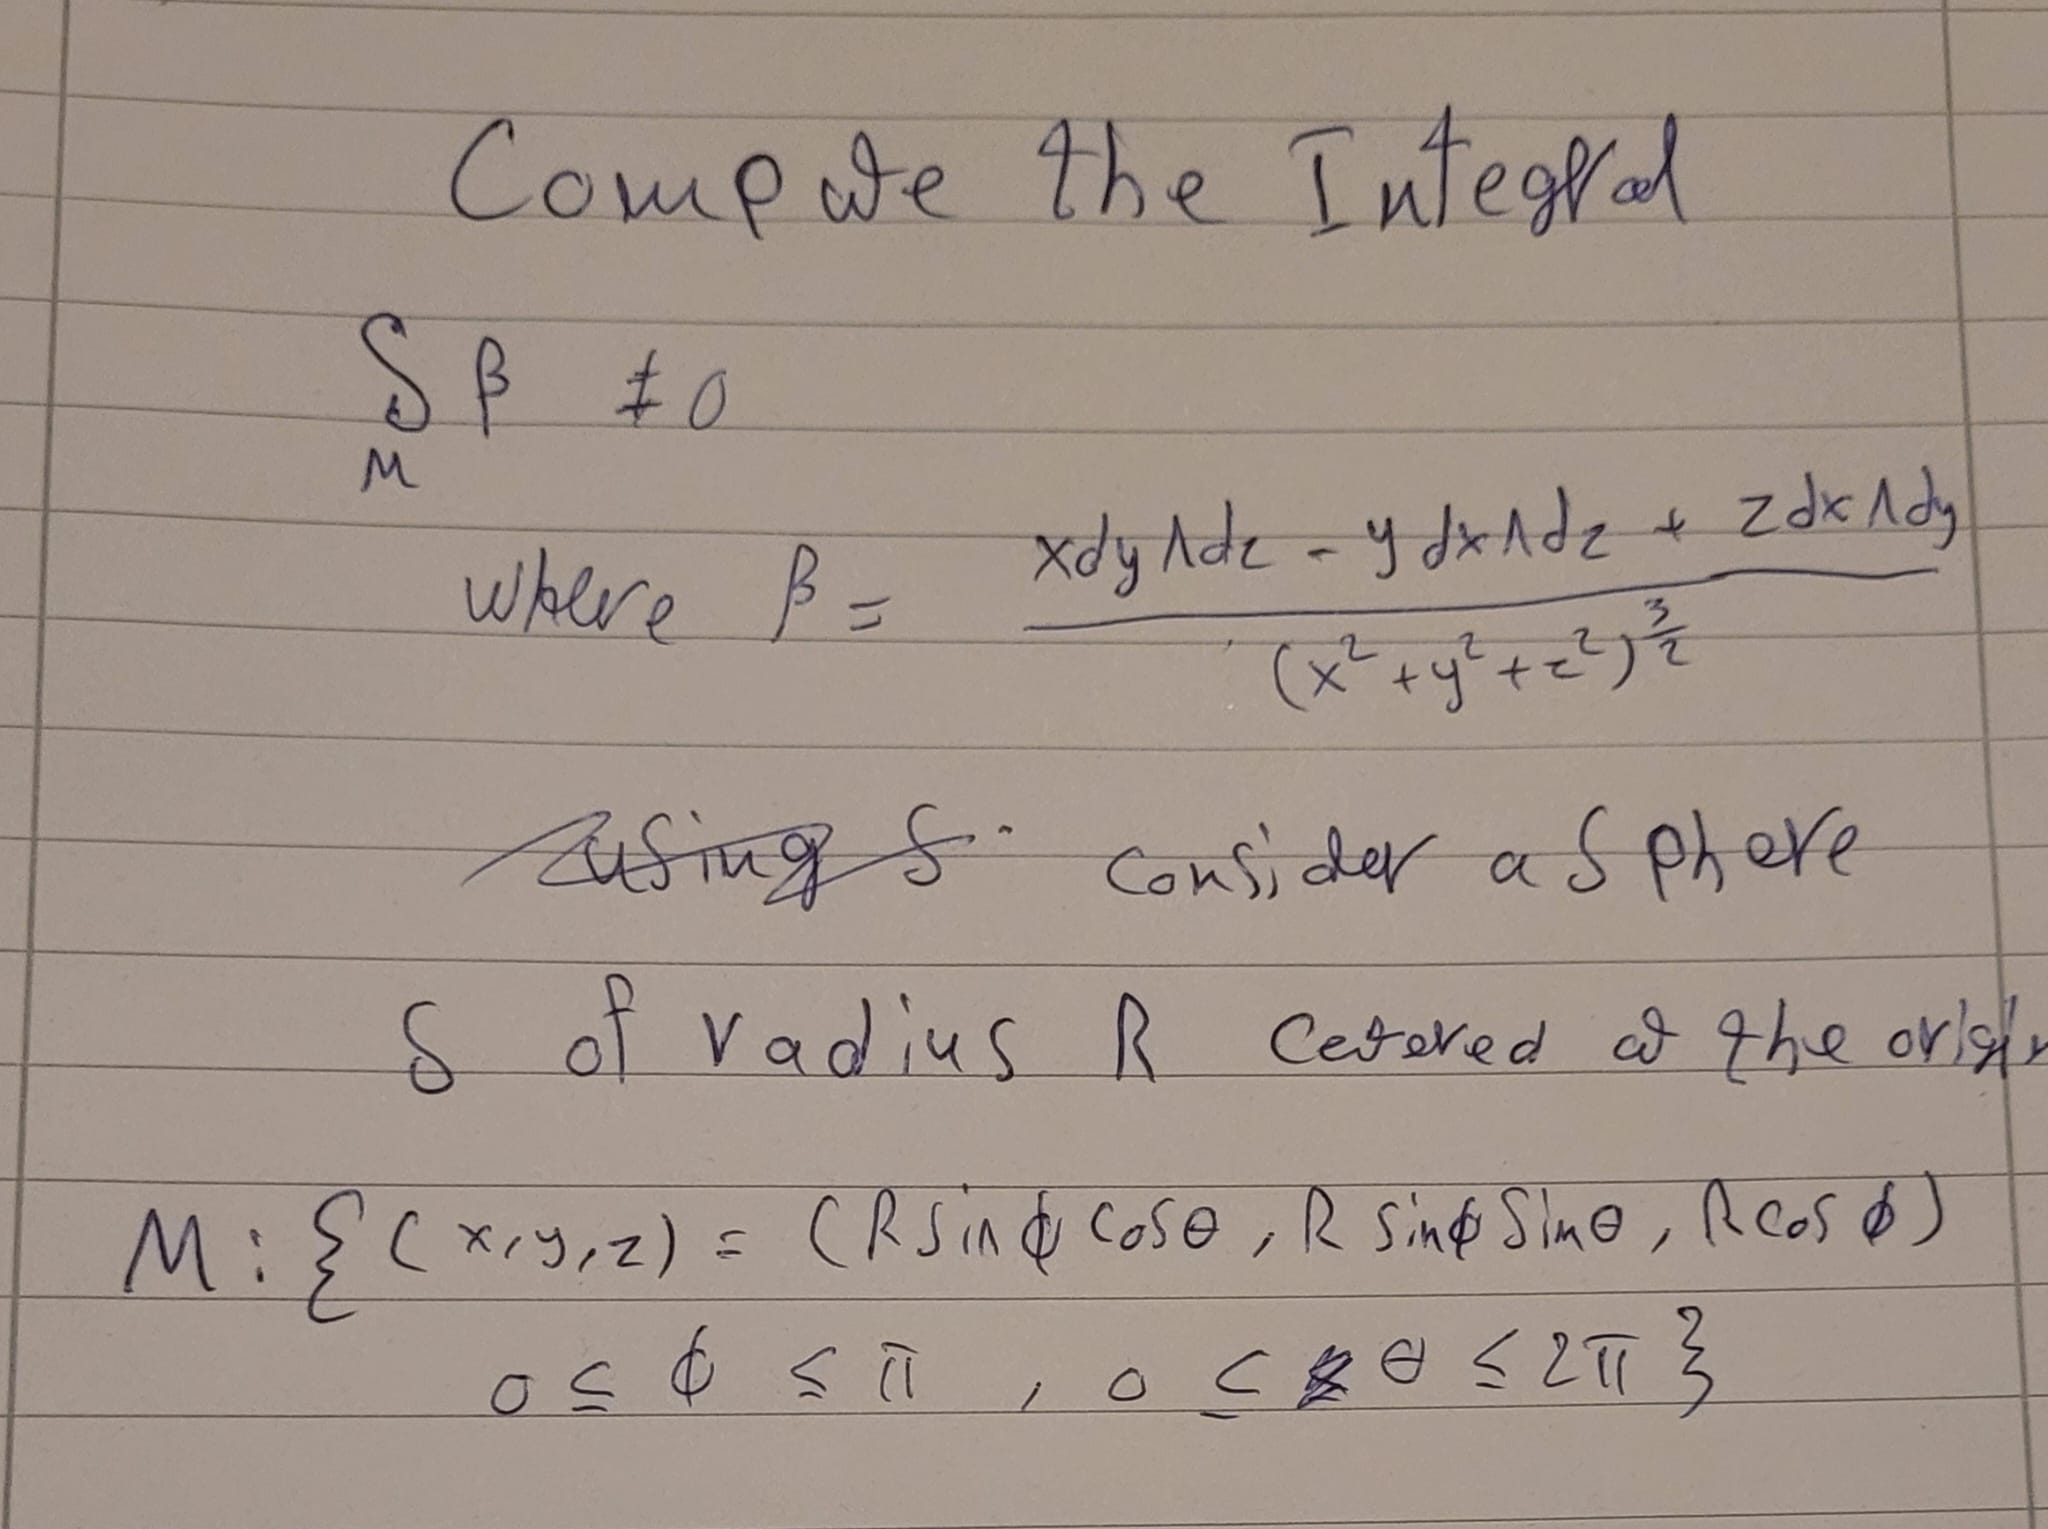 Compute the Integral
∫ β ≠ 0
M
where β = \frac{x dy ∧ dz - y dx ∧ dz + z dx ∧ dy}{(x² + y² + z²)^{\frac{3}{2}}}
consider a Sphere
S of radius R Cetered at the origin
M : { (x, y, z) = (R sin ϕ cos θ, R sin ϕ Sin θ, R cos ϕ)
0 ≤ ϕ ≤ π , 0 ≤ θ ≤ 2π }